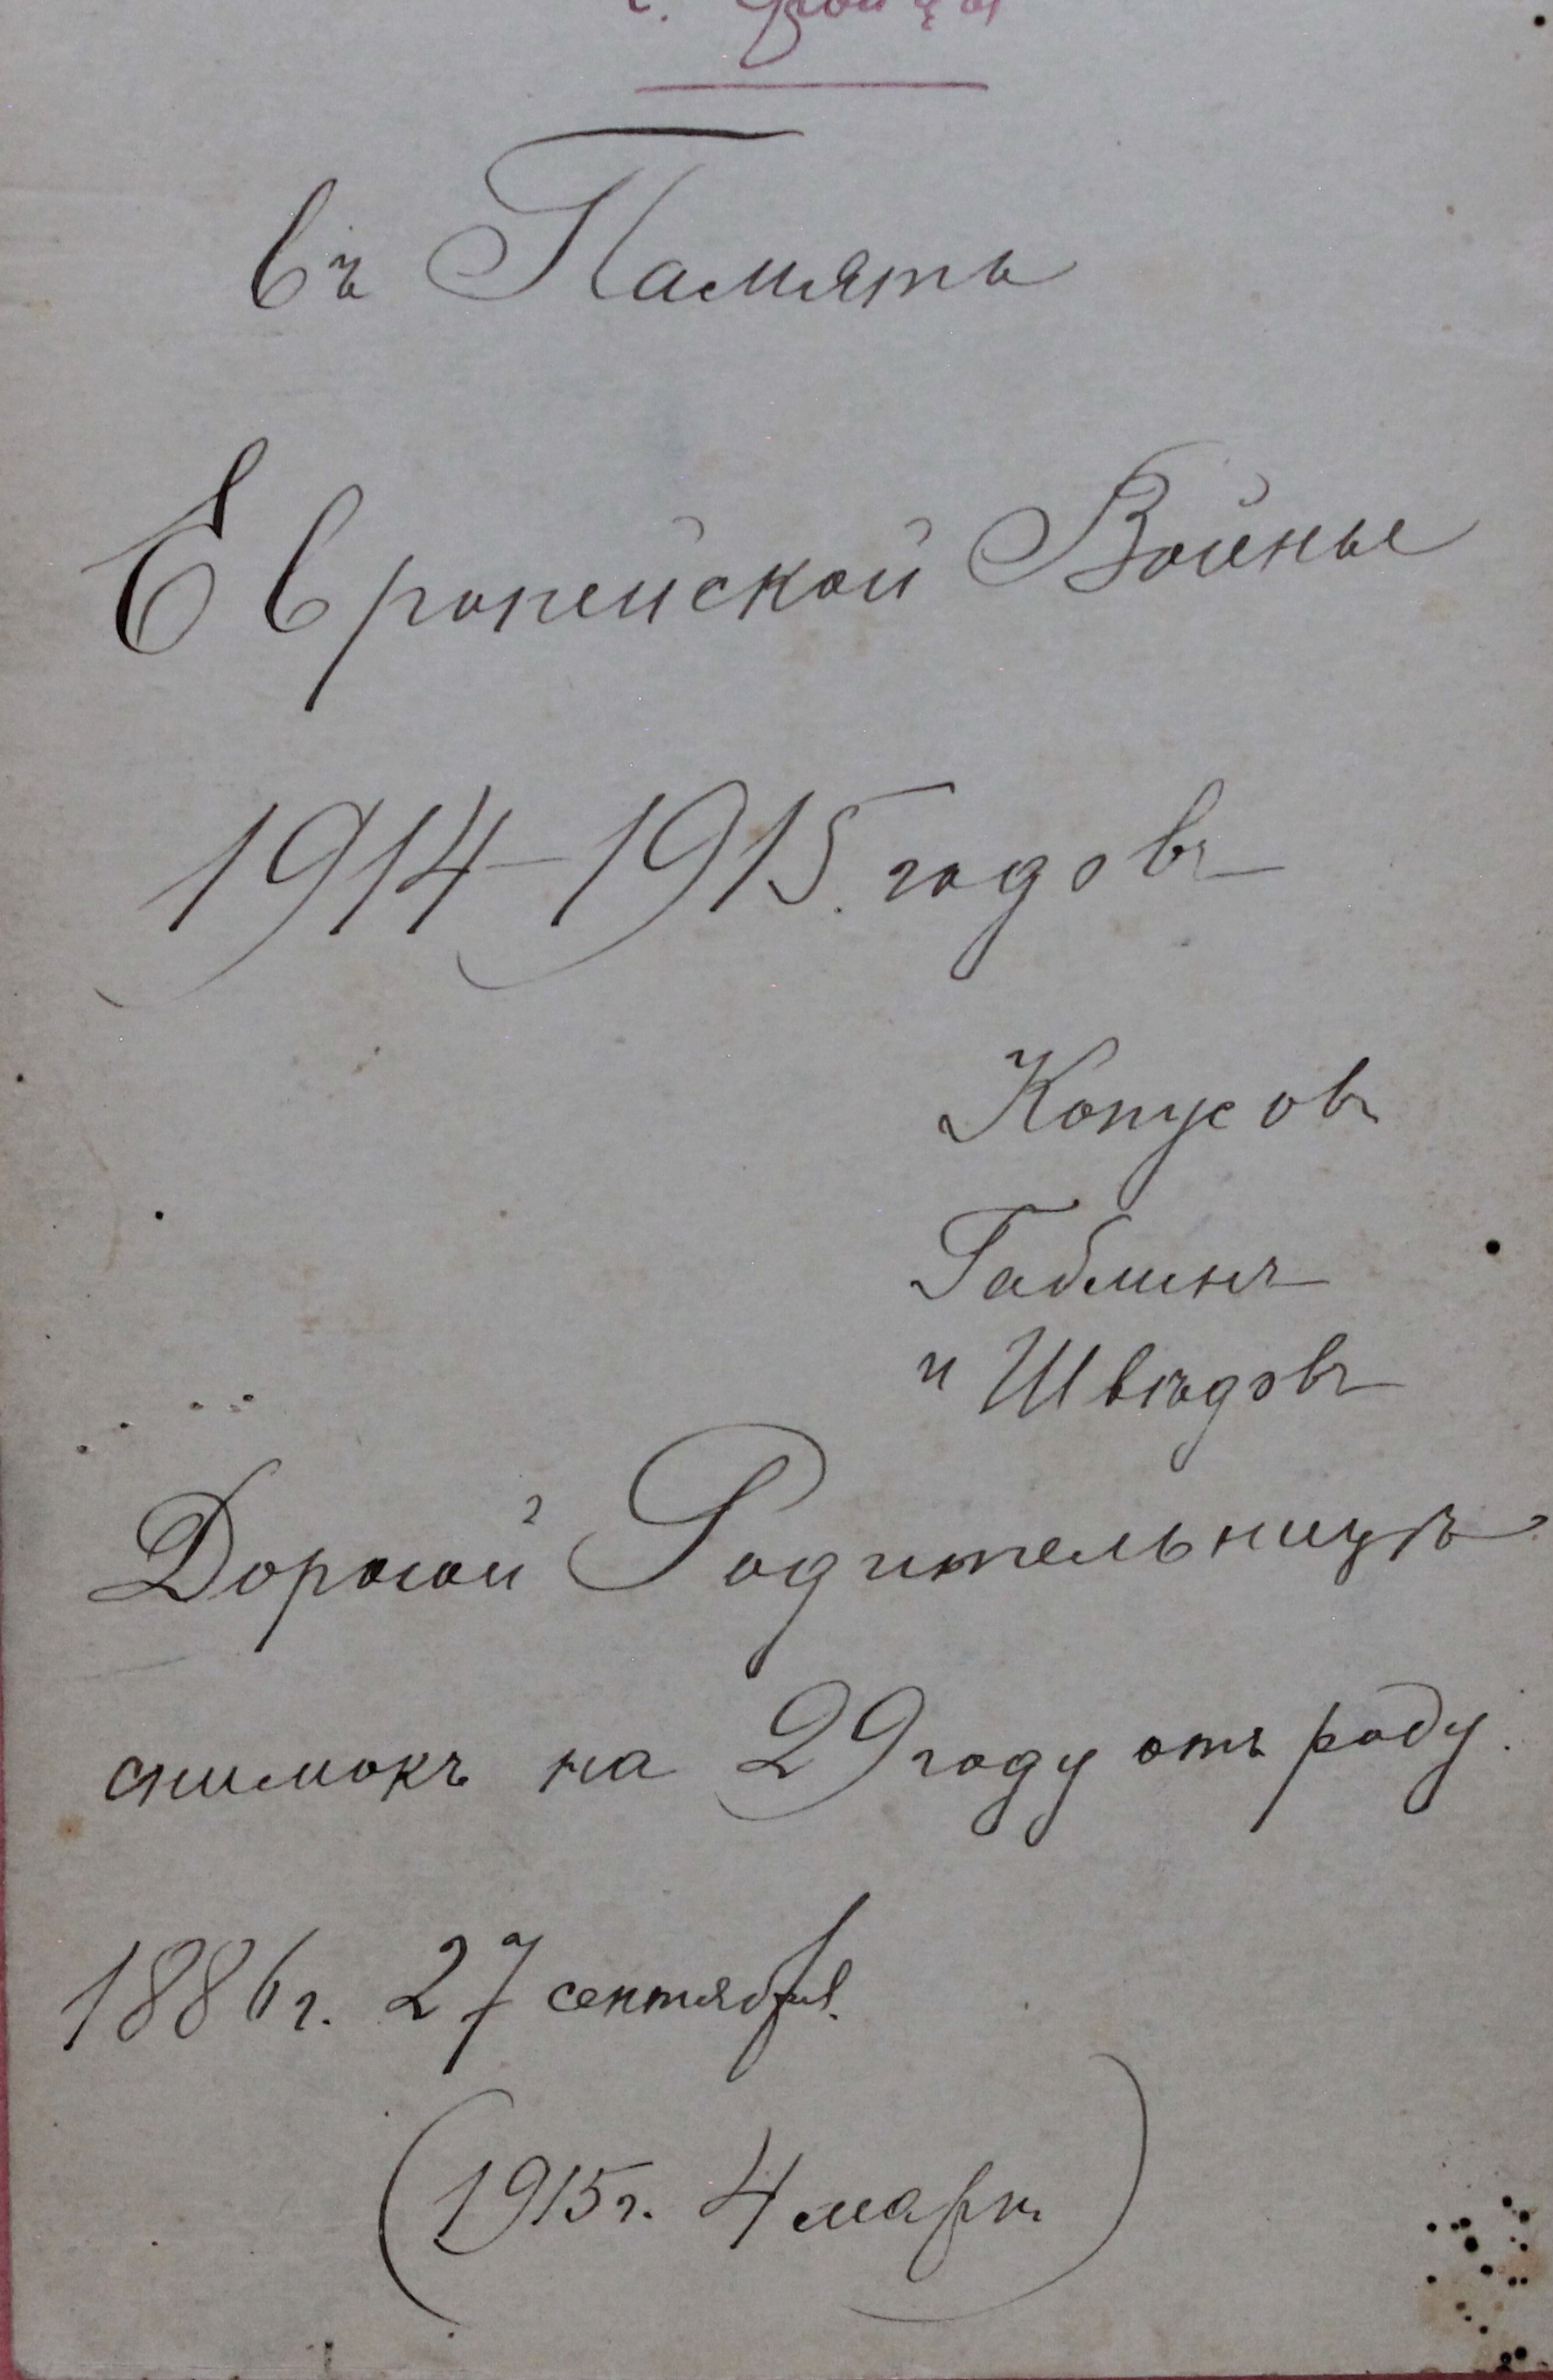 Въ Память
Европейской Войны
1914–1915. годовъ
Копусовъ
Габлинъ
и Швѣдовъ
Дорогой Родительницѣ
снимокъ на 29 году отъ роду.
1886 г. 27 сентября.
(1915 г. 4 мар.)